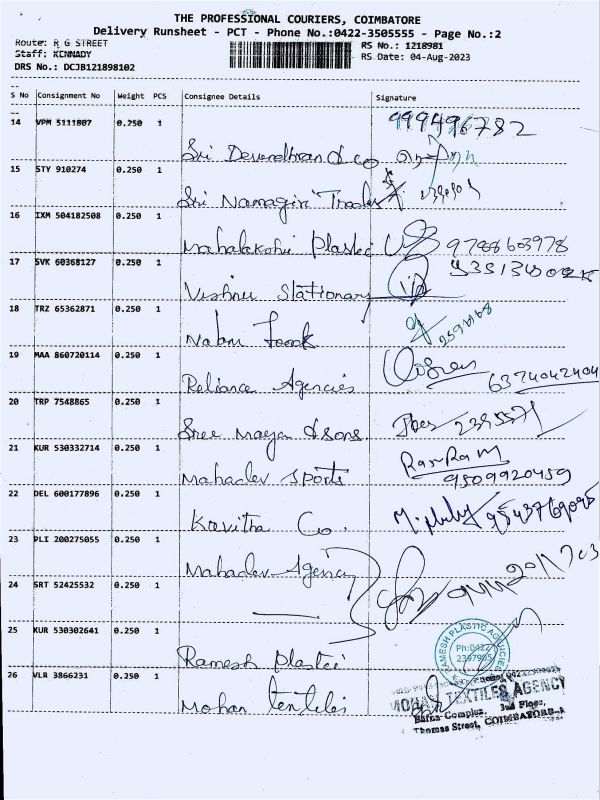 THE PROFESSIONAL COURIERS, COIMBATORE
Delivery Runsheet - PCT - Phone No.:0422-3505555 - Page No.:2
Route: R G STREET
Staff: KENNADY
RS No.: 1218981
RS Date: 04-Aug-2023
DRS No.: DCJB121898102
S No Consignment No Weight PCS Consignee Details Signature
14 VPM 5111807 0.250 1 Sri Devendhran & co
15 STY 910274 0.250 1 Sri Namagiri Trades
16 IXM 504182508 0.250 1 Mahalakshi Plastic 9788603978
17 SVK 60368127 0.250 1 Vishnu Stationary
18 TRZ 65362871 0.250 1
19 MAA 860720114 0.250 1 Reliance Agencies 6374042404
20 TRP 7548865 0.250 1 Sree Maya & sons 2395571
21 KUR 530332714 0.250 1 Mahadev Sports Ram Ram 9509920459
22 DEL 600177896 0.250 1 Kavitha Co.
23 PLI 200275055 0.250 1 Mahadev Agency
24 SRT 52425532 0.250 1
25 KUR 530302641 0.250 1 Ramesh Plastic RAMESH PLASTIC AGENCIES Ph:0422 2397905
26 VLR 3866231 0.250 1 Mohan textiles
MOHAN TEXTILES AGENCY
Bafna Complex, 3rd Floor,
Thomas Street, COIMBATORE-1